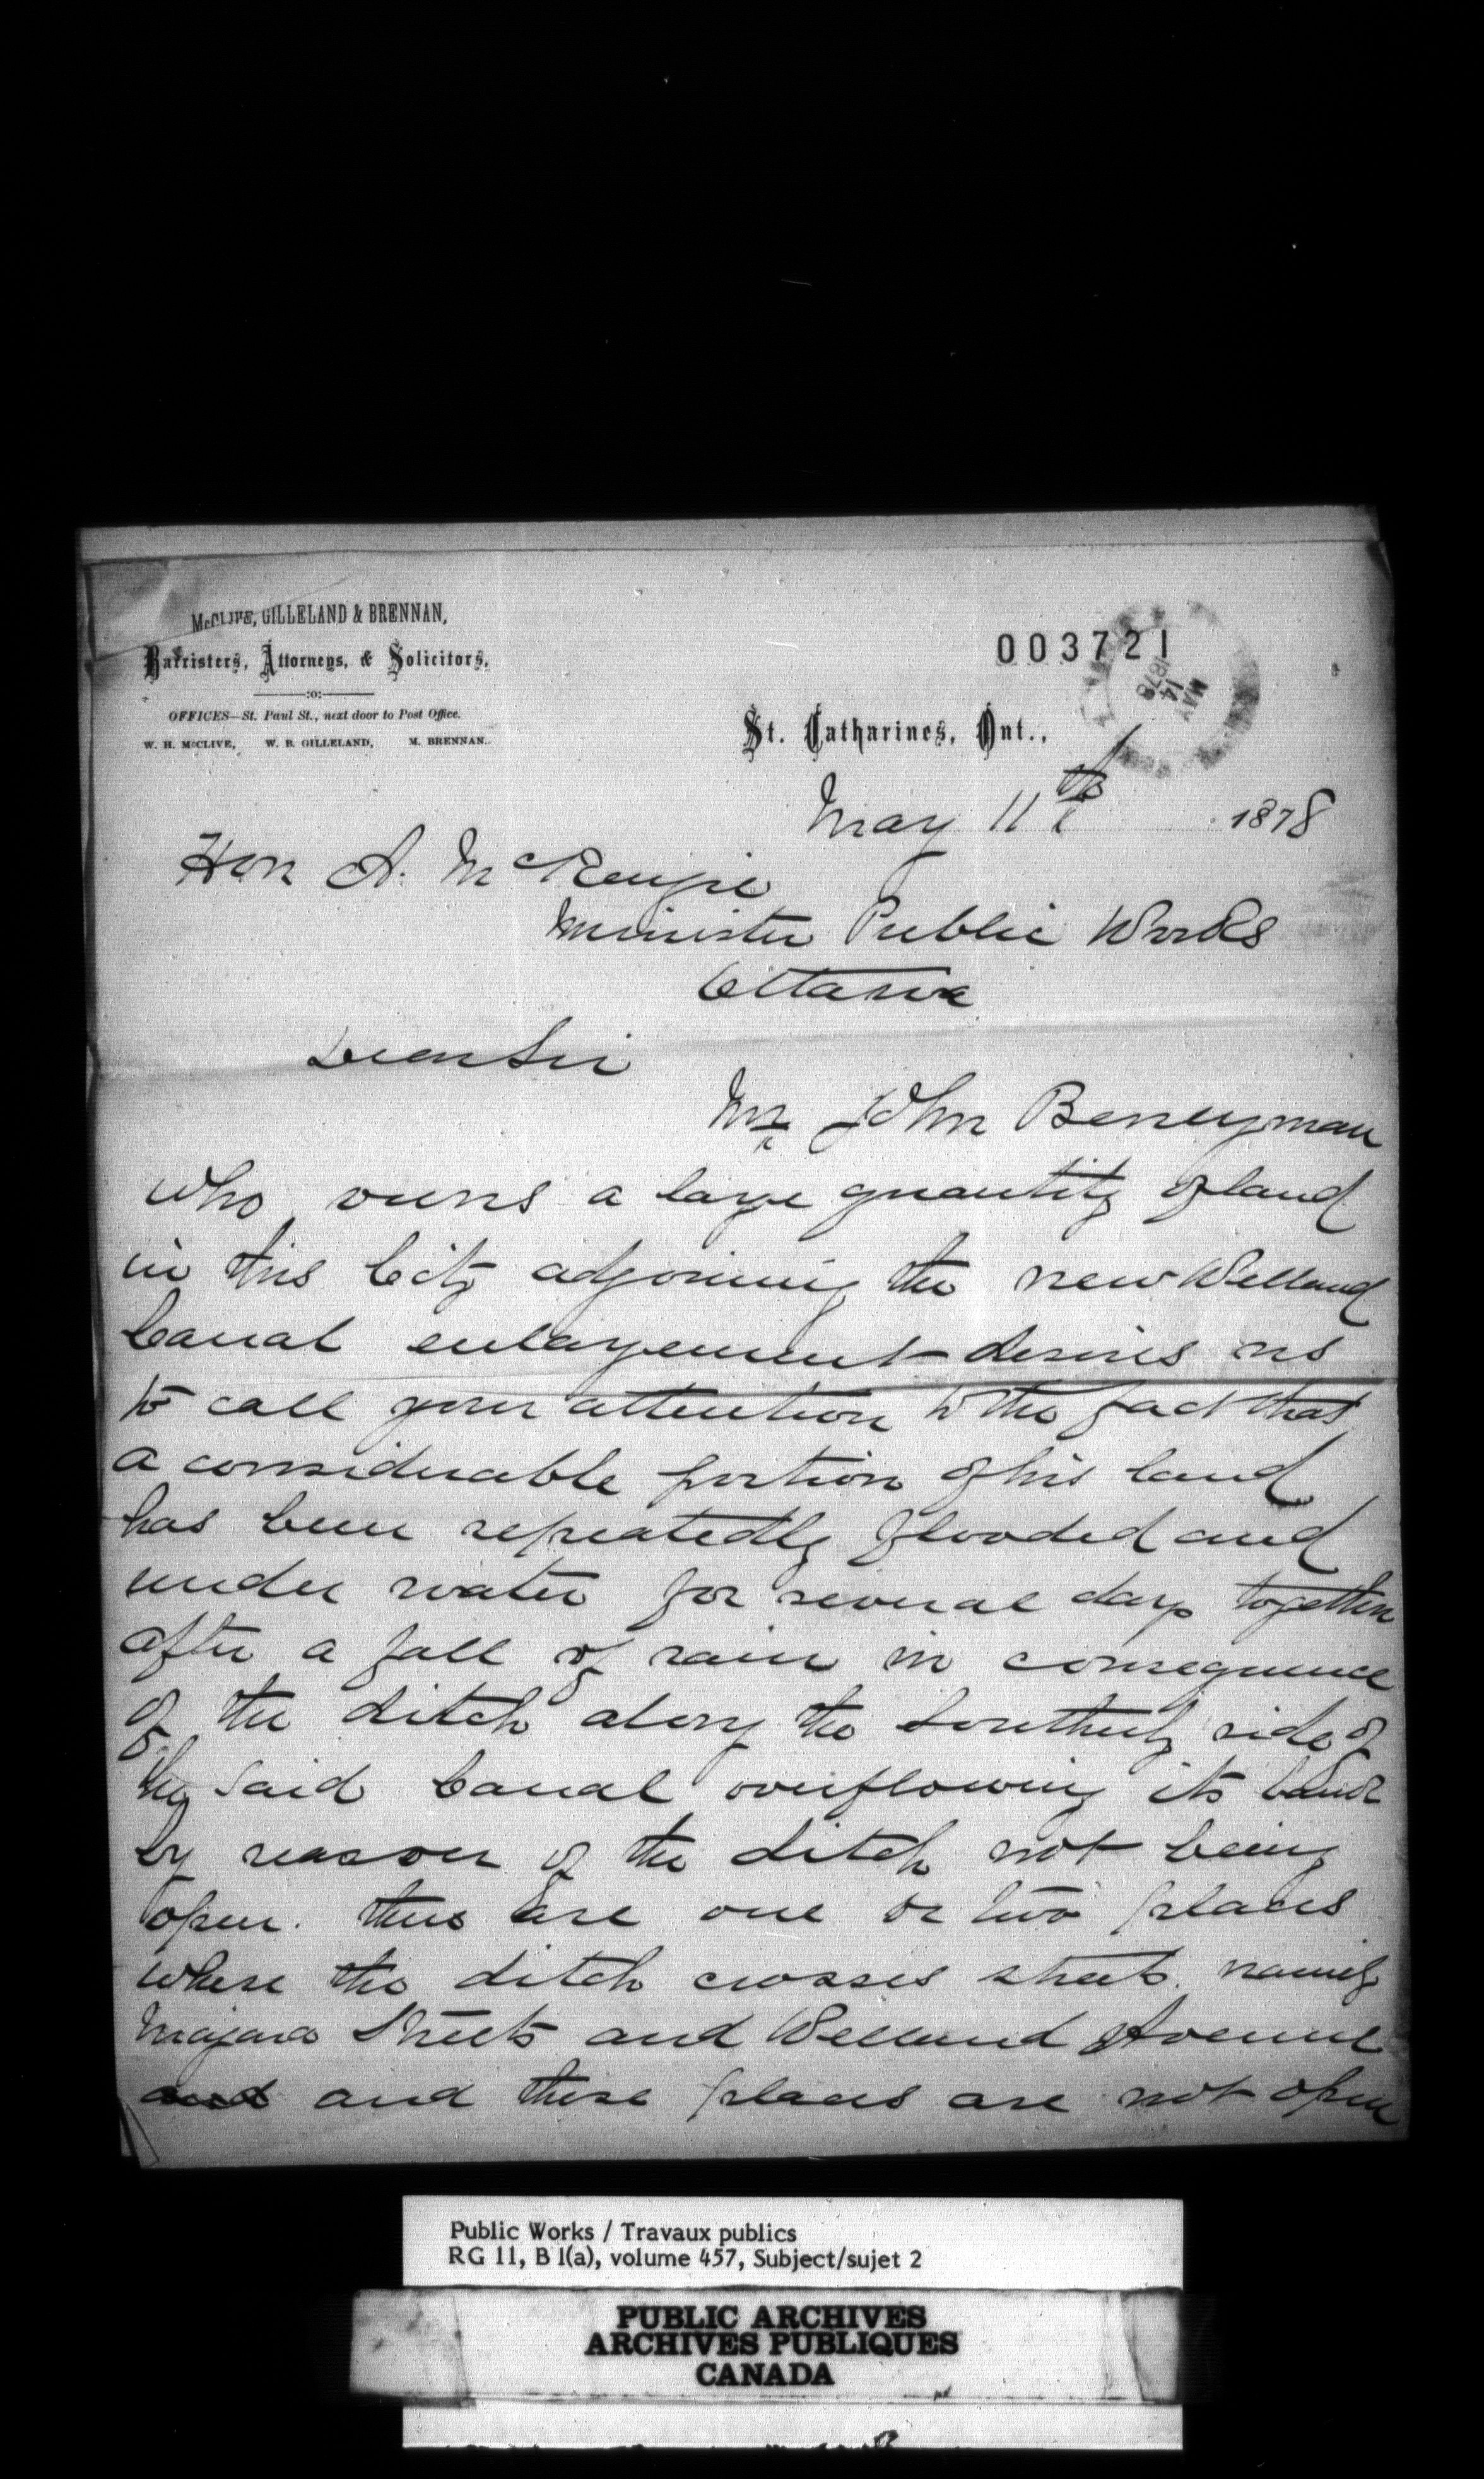 McCLIVE, GILLELAND & BRENNAN,
Barristers, Attorneys, & Solicitors,
:o:
OFFICES—St. Paul St., next door to Post Office.
W. H. McCLIVE, W. B. GILLELAND, M. BRENNAN.
003721
MAY
14
1878
St. Catharines, Ont.,
May 11th 1878
Hon A. McKenzie
Minister Public Works
Ottawa
Dear Sir
Mr John Berryman
who owns a large quantity of land
in this City adjoining the new Welland
Canal enlargement desires us
to call your attention to the fact that
a considerable portion of his land
has been repeatedly flooded and
under water for several days together
after a fall of rain in consequence
of the ditch along the Southerly side of
the said Canal overflowing its bank
by reason of the ditch not being
open. there are one or two places
where the ditch crosses streets namely
Niagara Streets and Welland Avenue
and and these places are not open
Public Works / Travaux publics
RG 11, B 1(a), volume 457, Subject/sujet 2
PUBLIC ARCHIVES
ARCHIVES PUBLIQUES
CANADA